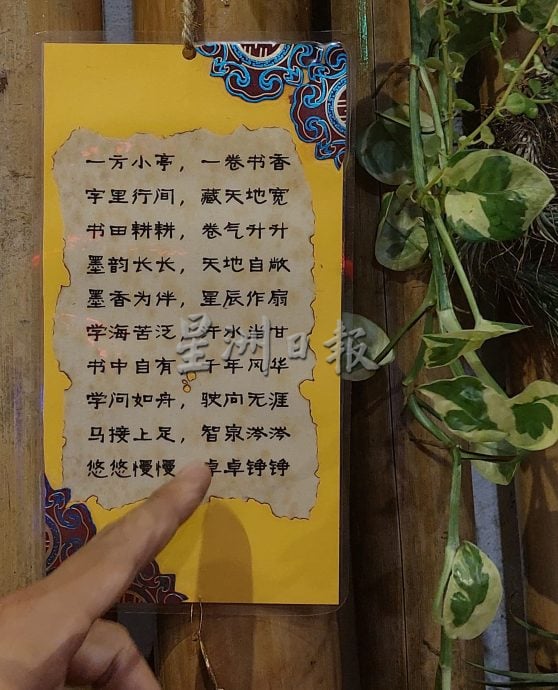 一方小亭，一卷书香
字里行间，藏天地宽
书田耕耕，卷气升升
墨韵长长，天地自敞
墨香为伴，星辰作扇
学海苦泛，午水当甘
书中自有，千年风华
学问如舟，驶向无涯
马接上足，智泉涔涔
悠悠慢慢，卓卓铮铮
星洲日报